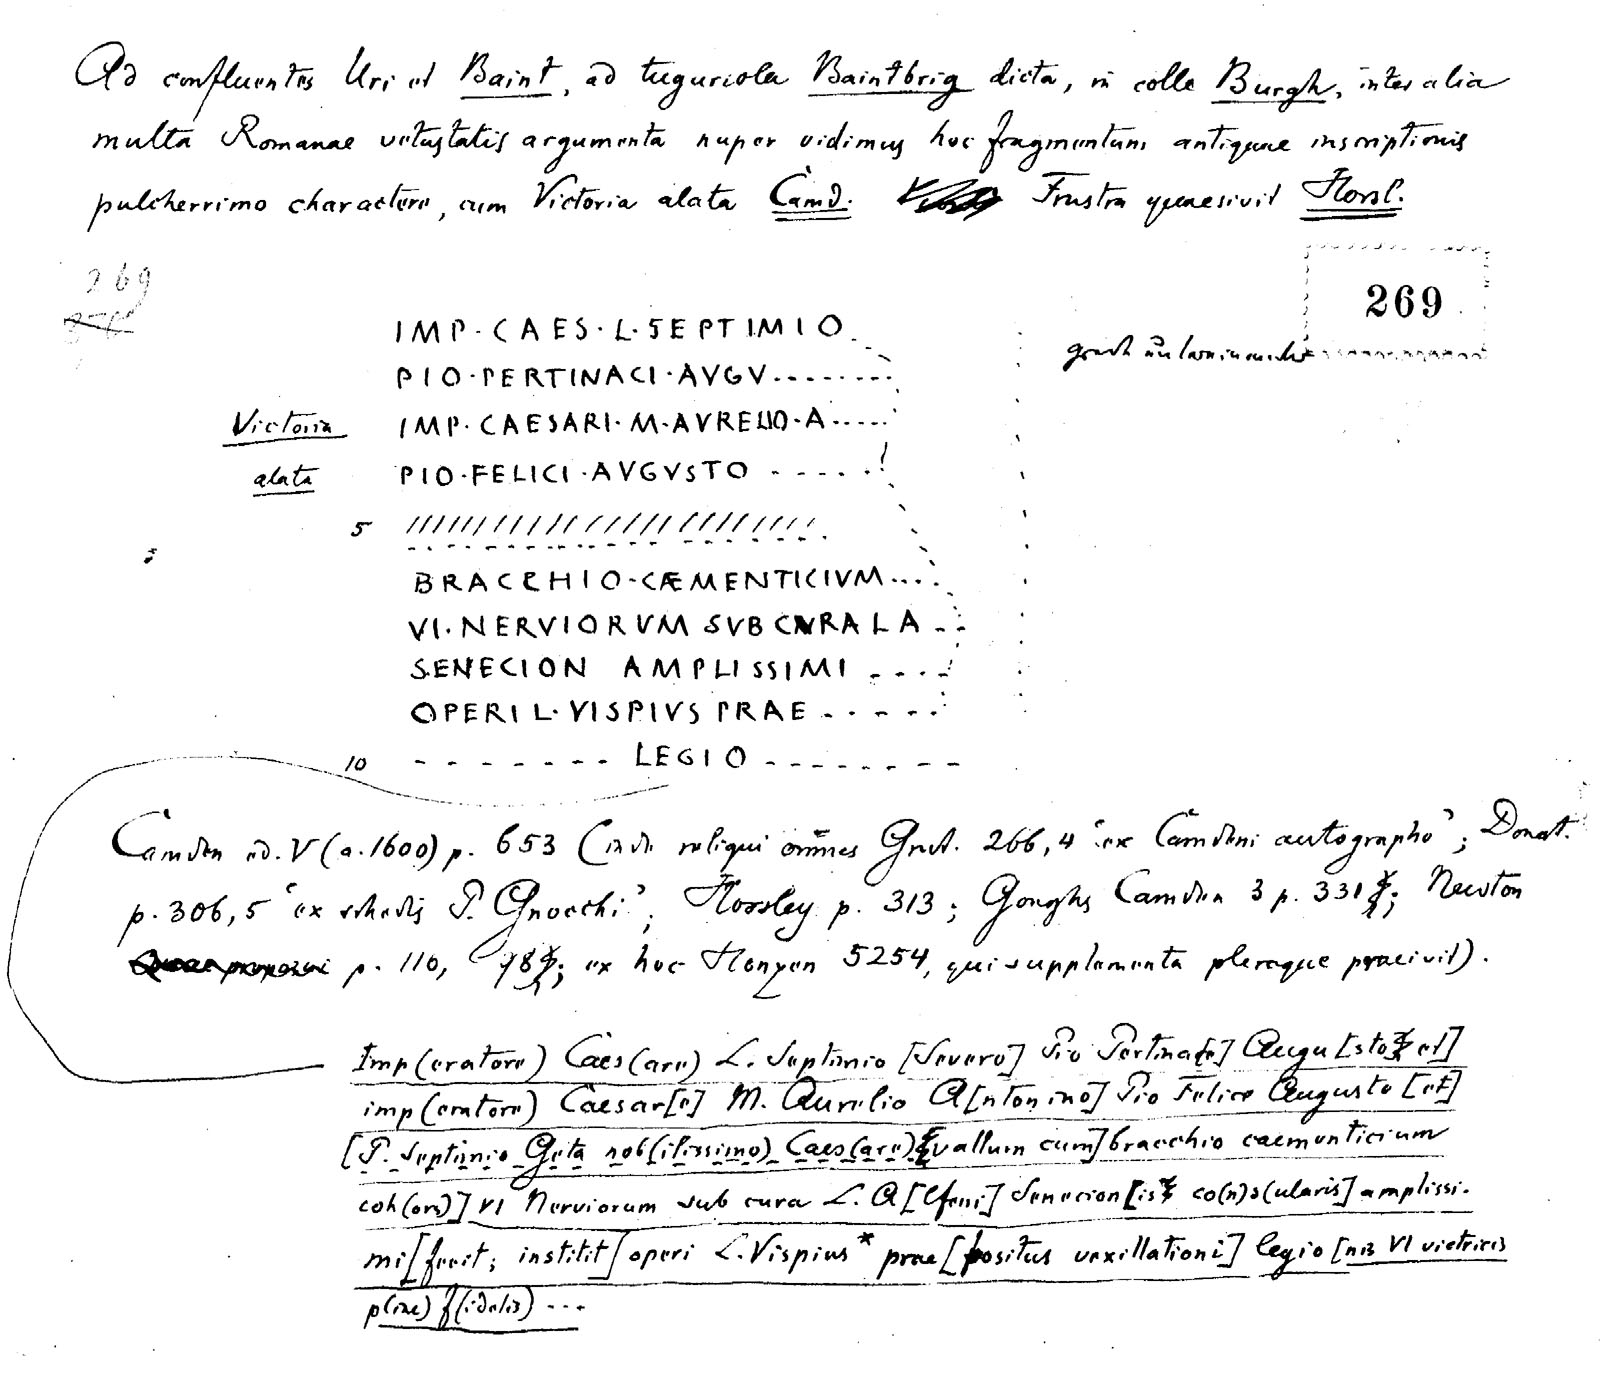 Ad confluentes Uri et Baint, ad tuguriola Baintbrig dicta, in colle Burgh, inter alia
multa Romanae vetustatis argumenta nuper vidimus hoc fragmentum antiquae inscriptionis
pulcherrimo charactere, cum Victoria alata Camd. Frustra quaesivit Horsl.
269
269
IMP·CAES·L·SEPTIMIO
PIO·PERTINACI·AVGV........
Victoria IMP·CAESARI·M·AVRELIO·A.....
alata PIO·FELICI·AVGVSTO - - - - -
5 ////////////////////
BRACCHIO·CÆMENTICIVM....
VI·NERVIORVM SVB CVRA L A - -
SENECION AMPLISSIMI - - - -
OPERI L·VISPIVS PRAE - - - - -
10 - - - - - - - LEGIO - - - - - - -
Camden ed. V (a. 1600) p. 653 (inde reliqui omnes Grut. 266,4 "ex Camdeni autographo"; Donat.
p. 306,5 "ex schedis P. Gnocchi"; Horsley p. 313; Goughs Camden 3 p. 331; Newton
p. 110, 78; ex hoc Henzen 5254, qui supplementa pleraque praeivit).
Imp(eratore) Caes(are) L. Septimio [Severo] Pio Pertinac[e] Augu[sto et]
imp(eratore) Caesar[e] M. Aurelio A[ntonino] Pio Felice Augusto [et]
[P. Septimio Geta nob(ilissimo) Caes(are) vallum cum] bracchio caementicium
coh(ors)] VI Nerviorum sub cura L. A[lfeni] Senecion[is co(n)s(ularis] amplissi-
mi [fecit; institit] operi L. Vispius* prae[positus vexillationi] legio[nis VI victricis
p(iae) f(idelis) ...